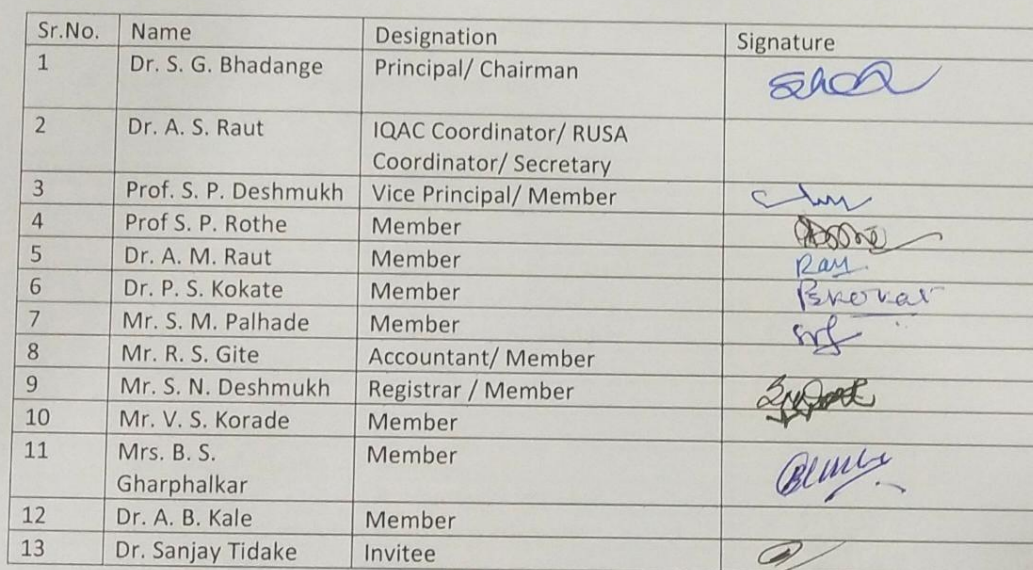 Sr.No. Name Designation Signature
1 Dr. S. G. Bhadange Principal/ Chairman
2 Dr. A. S. Raut IQAC Coordinator/ RUSA
Coordinator/ Secretary
3 Prof. S. P. Deshmukh Vice Principal/ Member
4 Prof S. P. Rothe Member
5 Dr. A. M. Raut Member
6 Dr. P. S. Kokate Member
7 Mr. S. M. Palhade Member
8 Mr. R. S. Gite Accountant/ Member
9 Mr. S. N. Deshmukh Registrar / Member
10 Mr. V. S. Korade Member
11 Mrs. B. S. Member
Gharphalkar
12 Dr. A. B. Kale Member
13 Dr. Sanjay Tidake Invitee